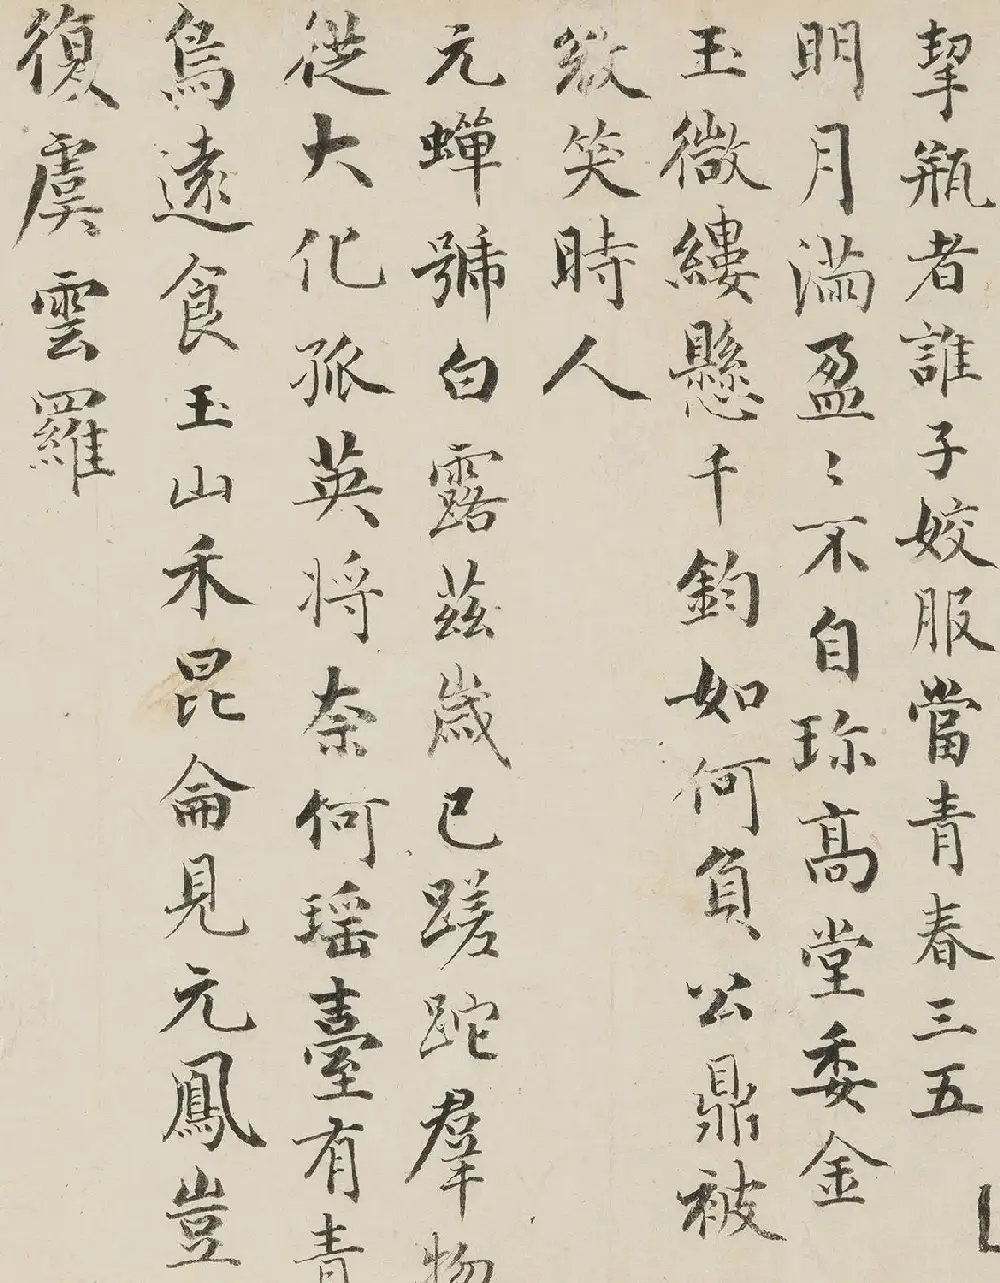 挈瓶者誰子姣服當青春三五
明月滿盈〻不自珎高堂委金
玉微縷懸千鈞如何負公鼎被
敚笑時人
元蟬號白露茲歲已蹉跎羣物
從大化孤英將奈何瑶臺有青
鳥遠食玉山禾昆侖見元鳳豈
復虞雲羅